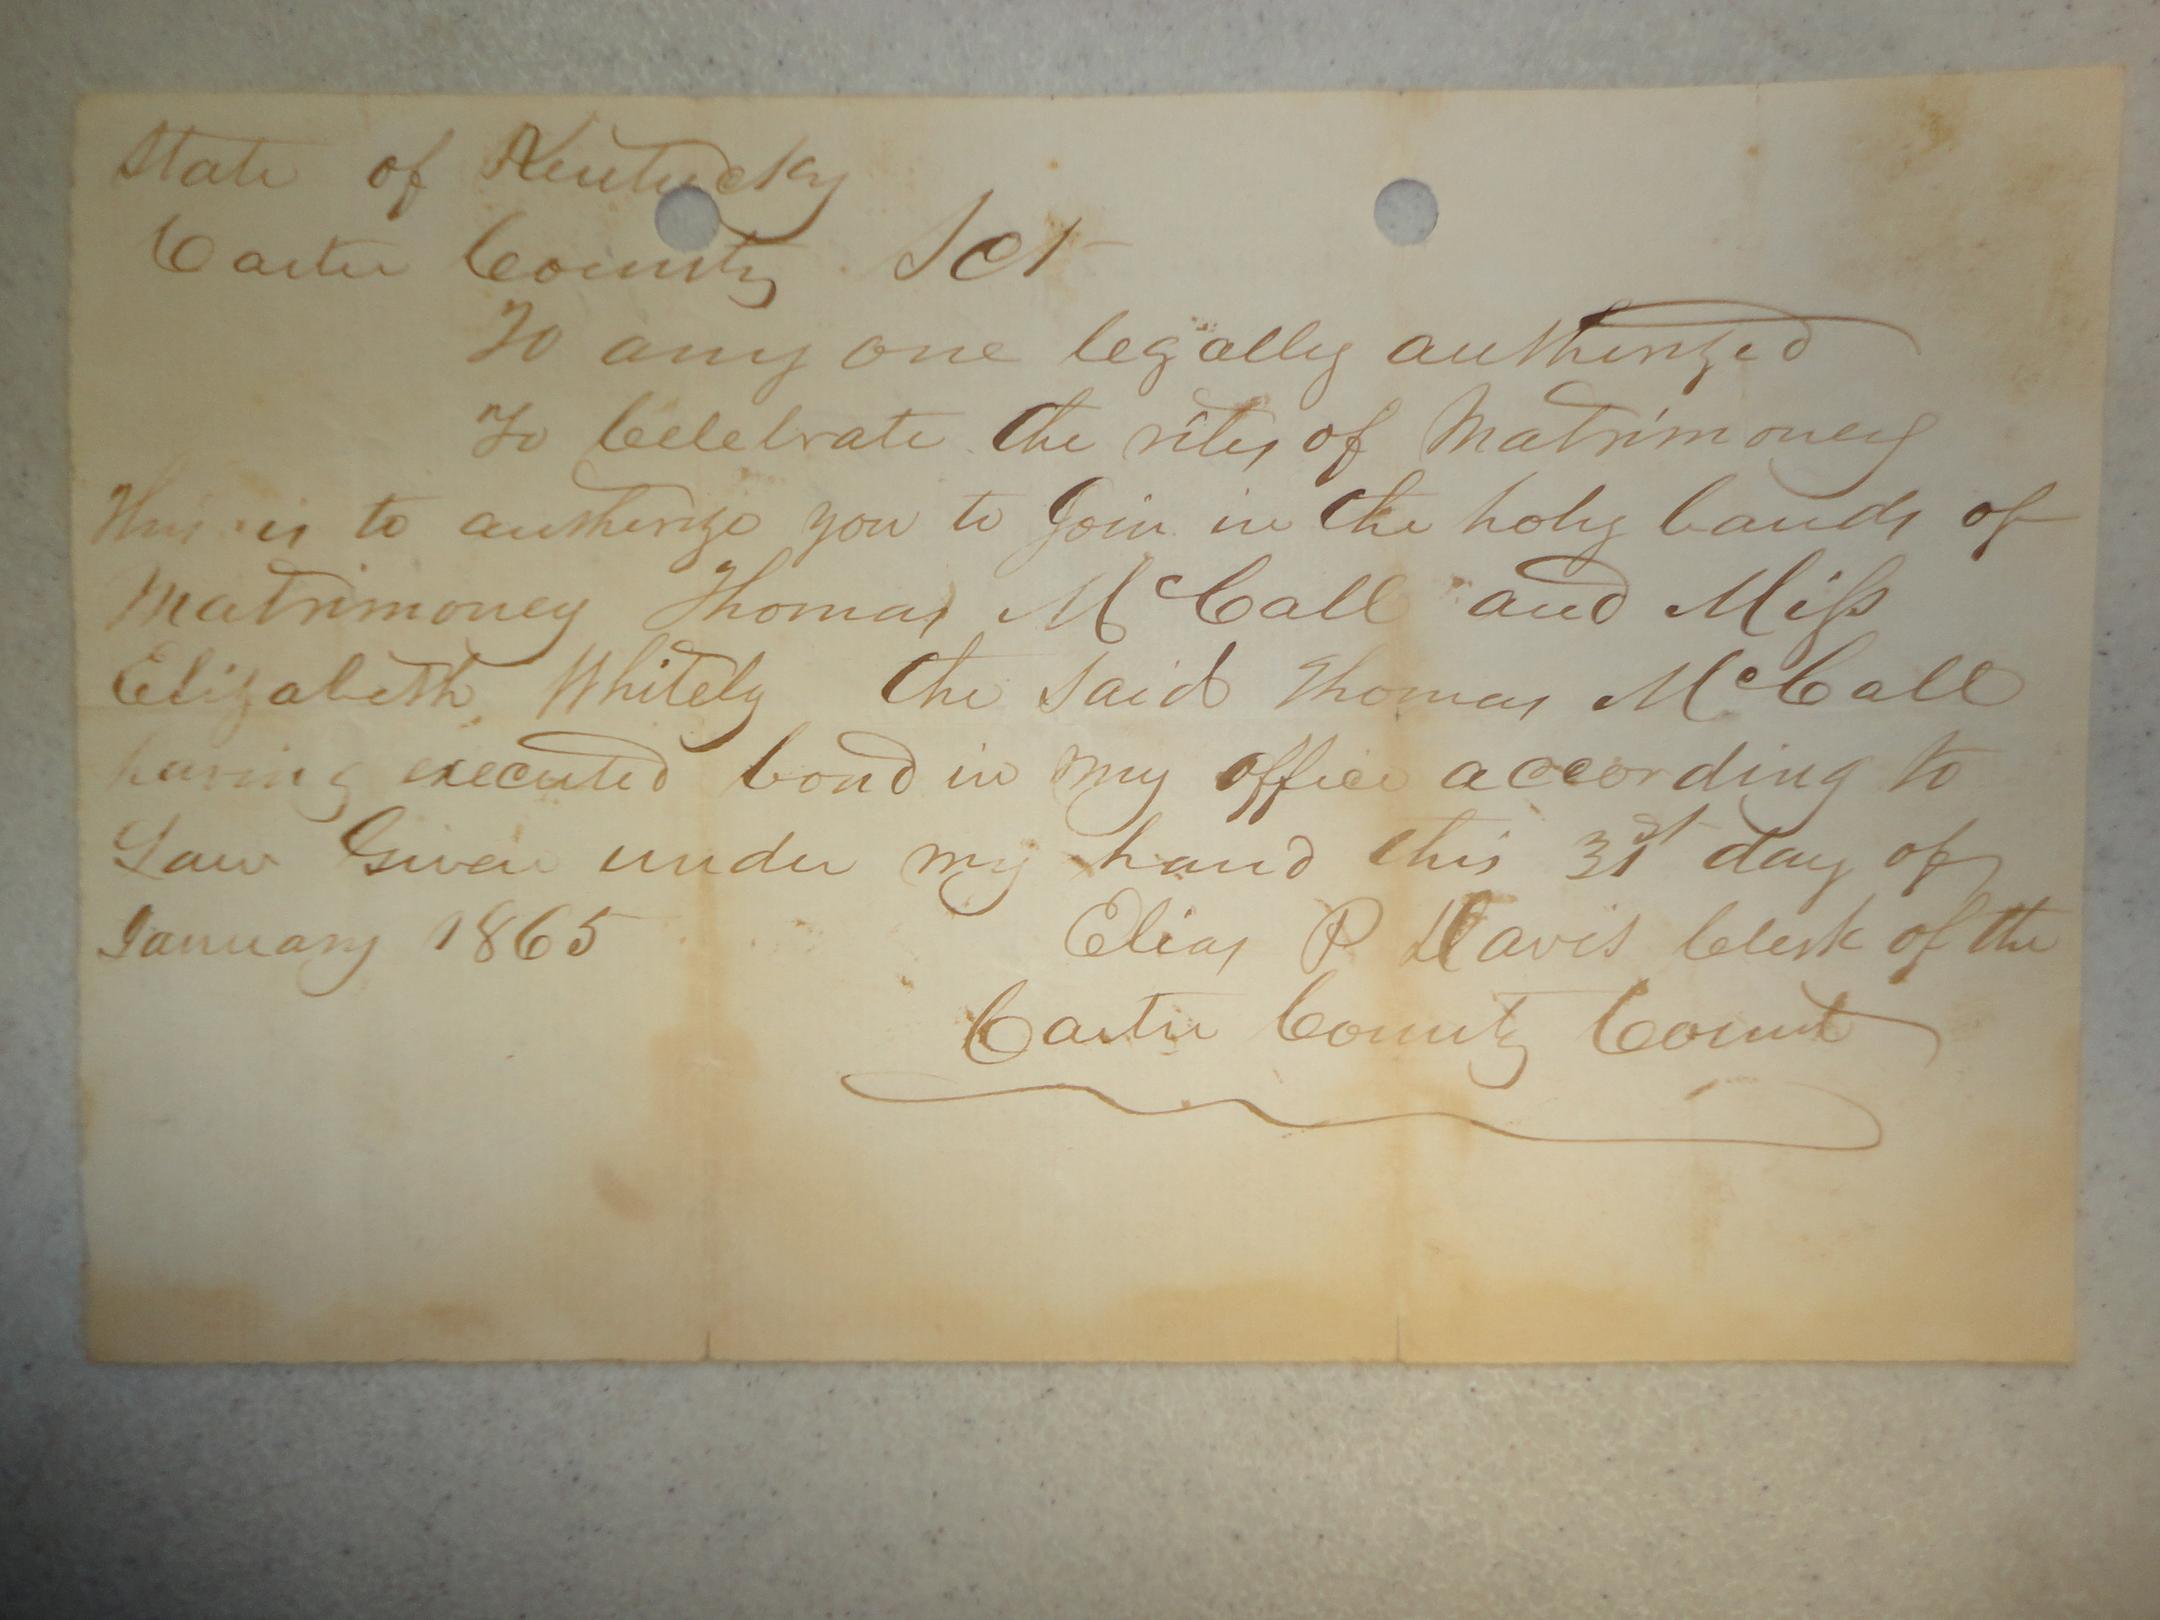 State of Kentucky
Carter County Sct
To any one legally autherized
To Celebrate the rites of Matrimoney
This is to autherize you to Join in the holy bands of
Matrimoney Thomas McCall and Miss
Elizabeth Whitely the said Thomas McCall
having executed bond in my office according to
Law Given under my hand this 31st day of
January 1865 Elias P Davis Clerk of the
Carter County Court